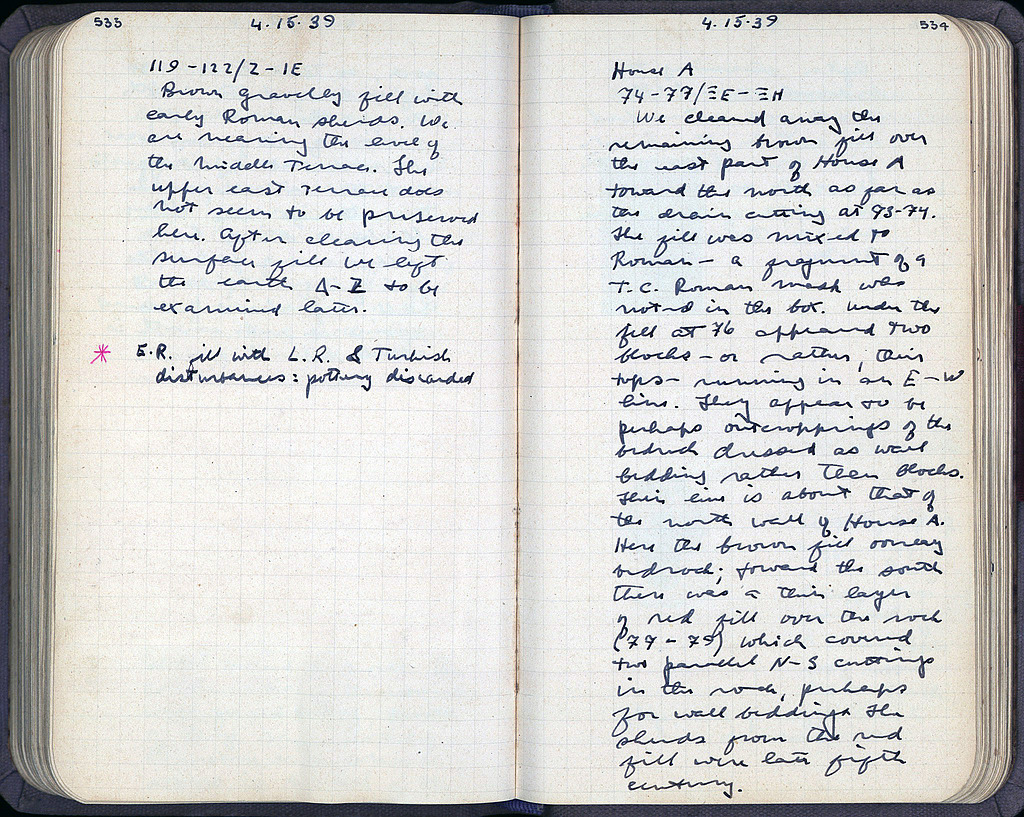 533
4.15.39
119-122/Z-1E
Brown gravelly fill with
early Roman sherds. We
are nearing the level of
the Middle Terrace. The
upper east terrace does
not seem to be preserved
here. After clearing the
surface fill we left
the earth A-Z to be
examined later.
* E.R. fill with L.R. & Turkish
disturbances: pottery discarded
4.15.39
534
House A
74-77/ΞE-ΞH
We cleaned away the
remaining brown fill over
the east part of House A
toward the north as far as
the drain cutting at 73-74.
The fill was mixed to
Roman - a fragment of a
T.C. Roman mask was
noted in the box. Under the
fill at 76 appeared two
blocks - or rather, their
tops - running in an E-W
line. They appear to be
perhaps outcroppings of the
bedrock dressed as wall
bedding rather than blocks.
This line is about that of
the north wall of House A.
Here the brown fill overlay
bedrock; toward the south
there was a thin layer
of red fill over the rock
(77-79) which covered
two parallel N-S cuttings
in the rock, perhaps
for wall bedding. The
sherds from the red
fill were late fifth
century.